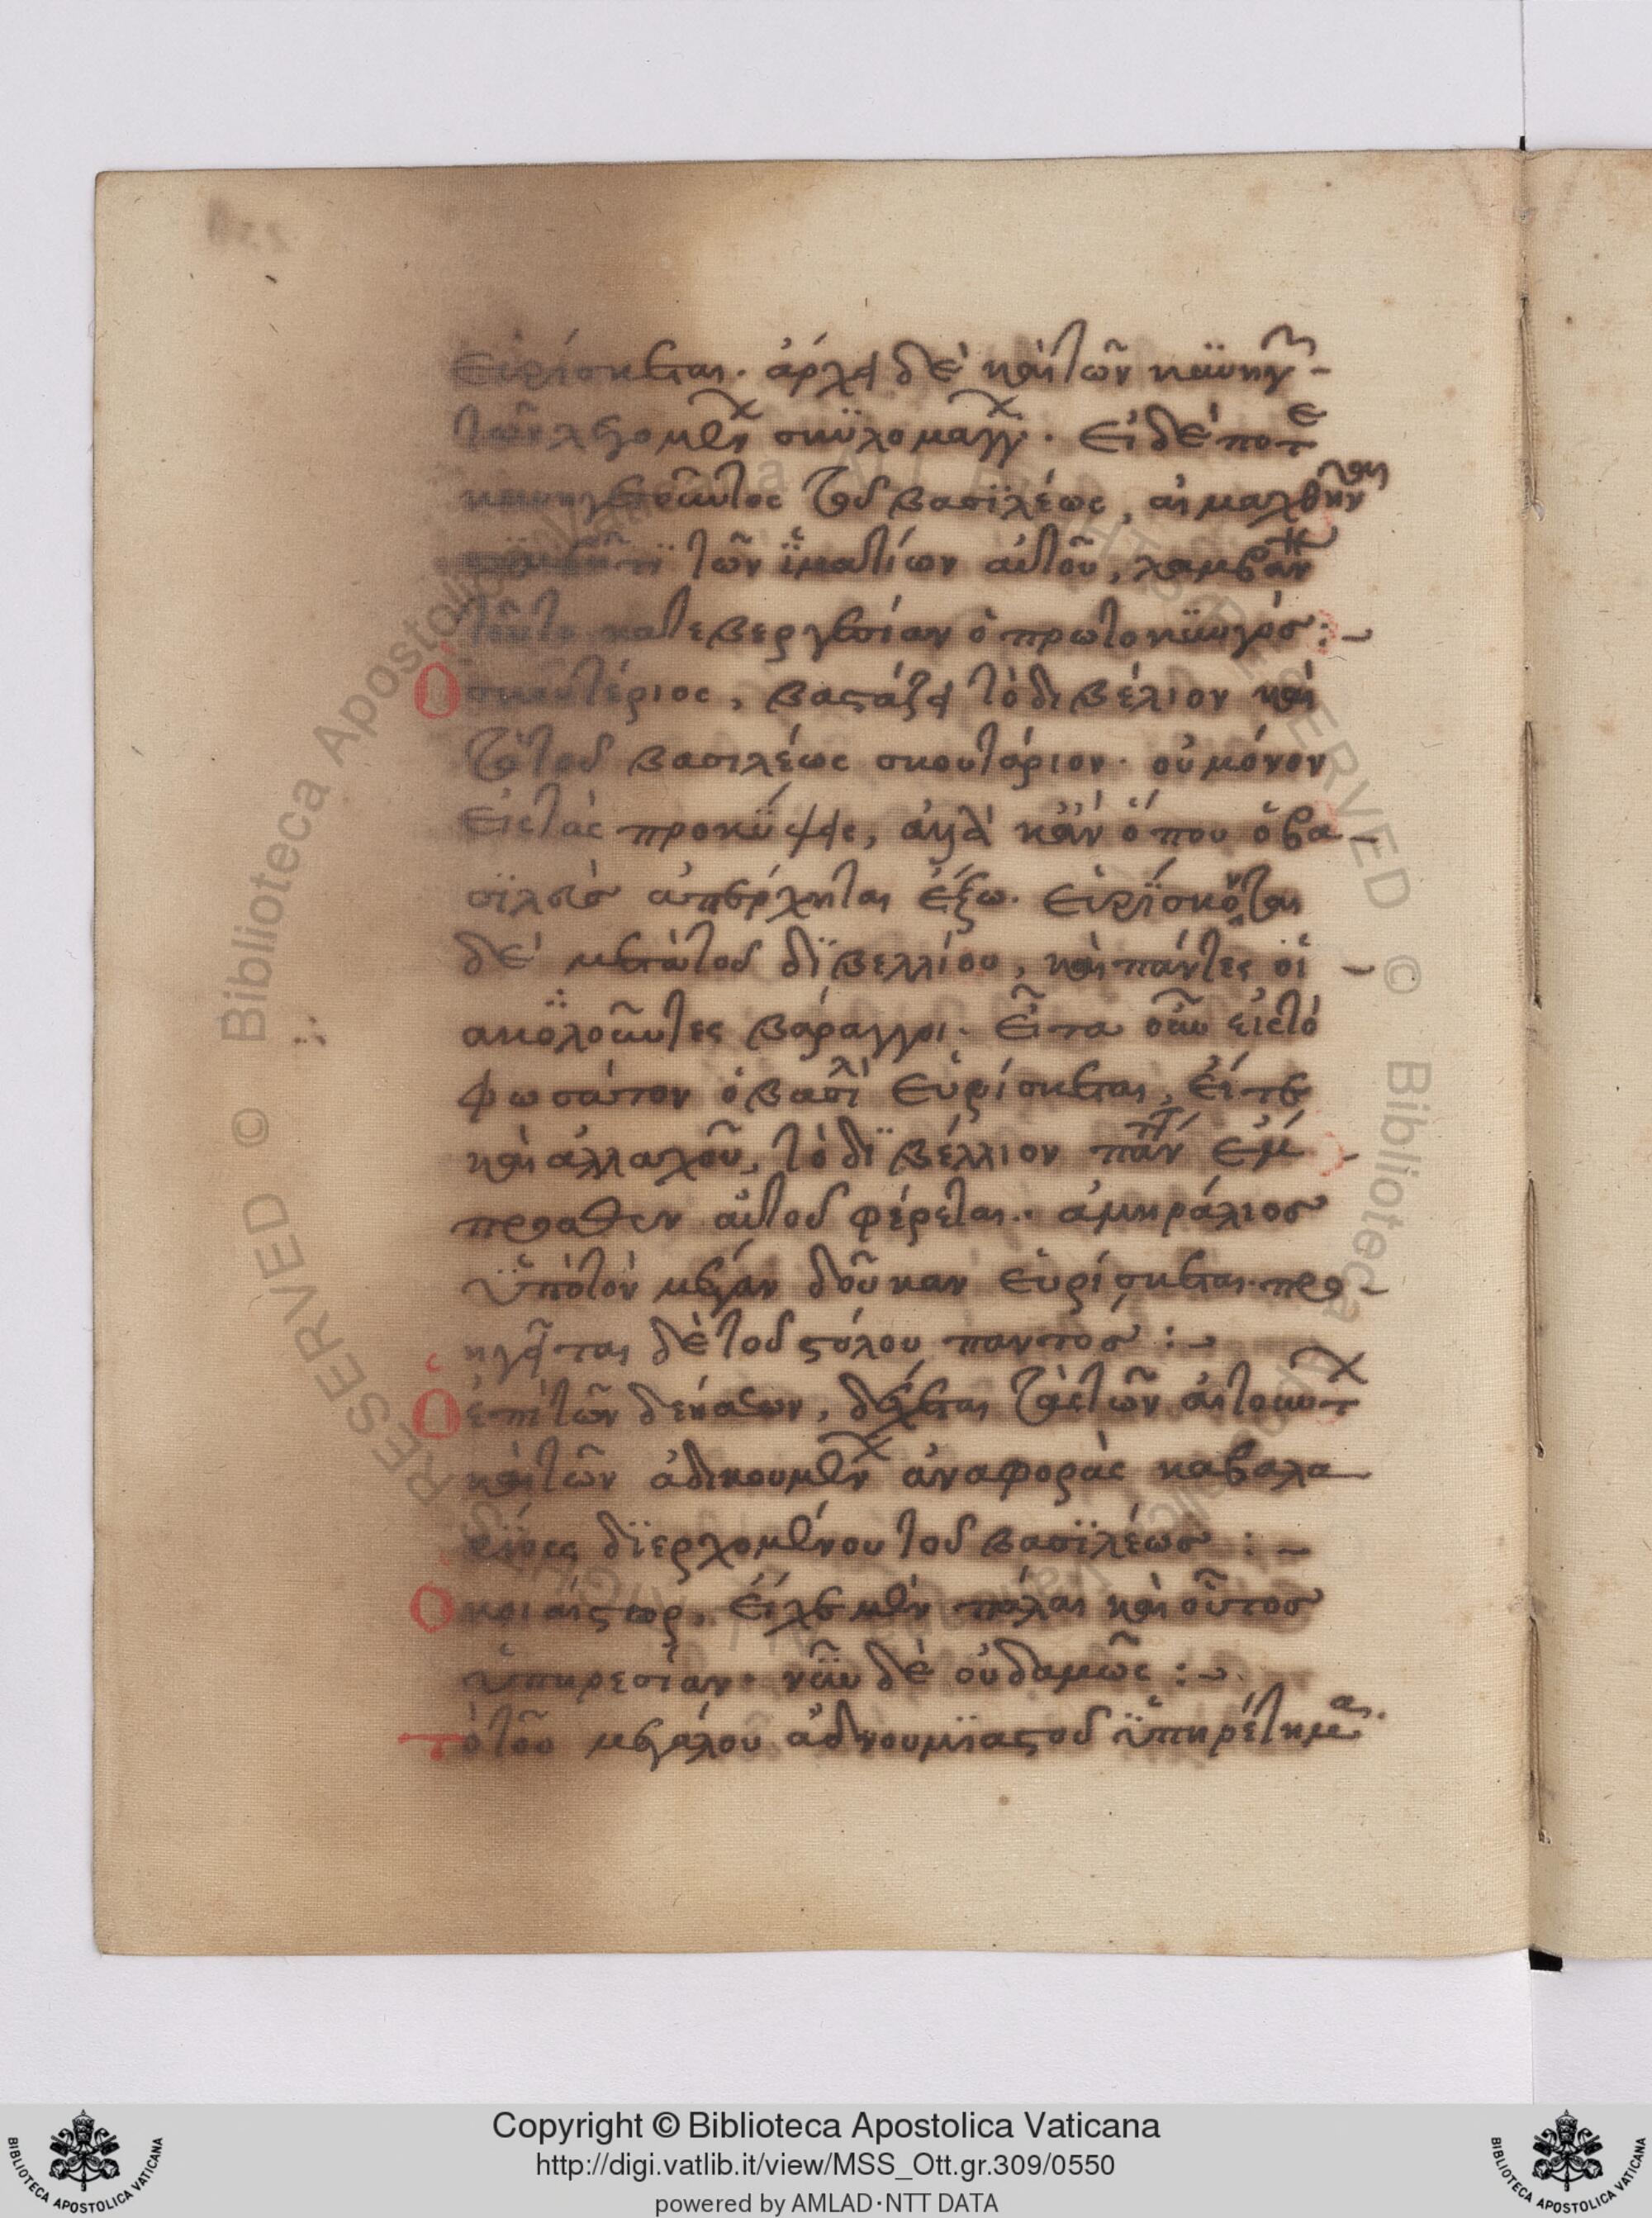 εὑρίσκεται. ἄρχει δὲ καὶ τῶν κυνηγ
τῶν λεγομένων σκυλομαγγ. εἰ δέ ποτε
κυνηγετοῦντος τοῦ βασιλέως, αἱμαχθῆναι
τῶν ἱματίων αὐτοῦ, λαμβάν
τοῦτο κατ εβεργεσίαν ὁ πρωτοκυνηγός:
Ὁ σκουτέριος, βαστάζει τὸ διβέλιον καὶ
τὸ τοῦ βασιλέως σκουτάριον. οὐ μόνον
εἰς τὰς προκύψεις, ἀλλὰ κἂν ὅπου ὁ βα
σιλεὺς ἀπέρχηται ἔξω. εὑρίσκονται
δὲ μετὰ τοῦ διβελλίου, καὶ πάντες οἱ
ακόλοῦντες βάραγγοι. εἶτα οὖν εἰς τὸ
φωσάτον ὁ βασιλ εὑρίσκεται, εἴτε
καὶ ἀλλαχοῦ, τὸ διβέλλιον πάν ἐμ
προσθεν αὐτοῦ φέρεται. ἀμηράλιος
ὑπὸ τὸν μέγαν δοῦκαν εὑρίσκεται. προ
ηγεῖται δὲ τοῦ στόλου παντὸς:
Ὁ ἐπὶ τῶν δεήσεων, δέχεται τὰς τῶν αἰτούντ
καὶ τῶν ἀδικουμένων ἀναφορὰς καβαλα
ρίους διερχομένου τοῦ βασιλέως:
Ὁ κοιαίστωρ, εἶχε μὲν πάλαι καὶ οὗτος
ὑπηρεσίαν. νῦν δὲ οὐδαμῶς:
Τὸ τοῦ μεγάλου ἀδνουμιαστοῦ ὑπηρέτημα.
Copyright © Biblioteca Apostolica Vaticana
http://digi.vatlib.it/view/MSS_Ott.gr.309/0550
powered by AMLAD·NTT DATA